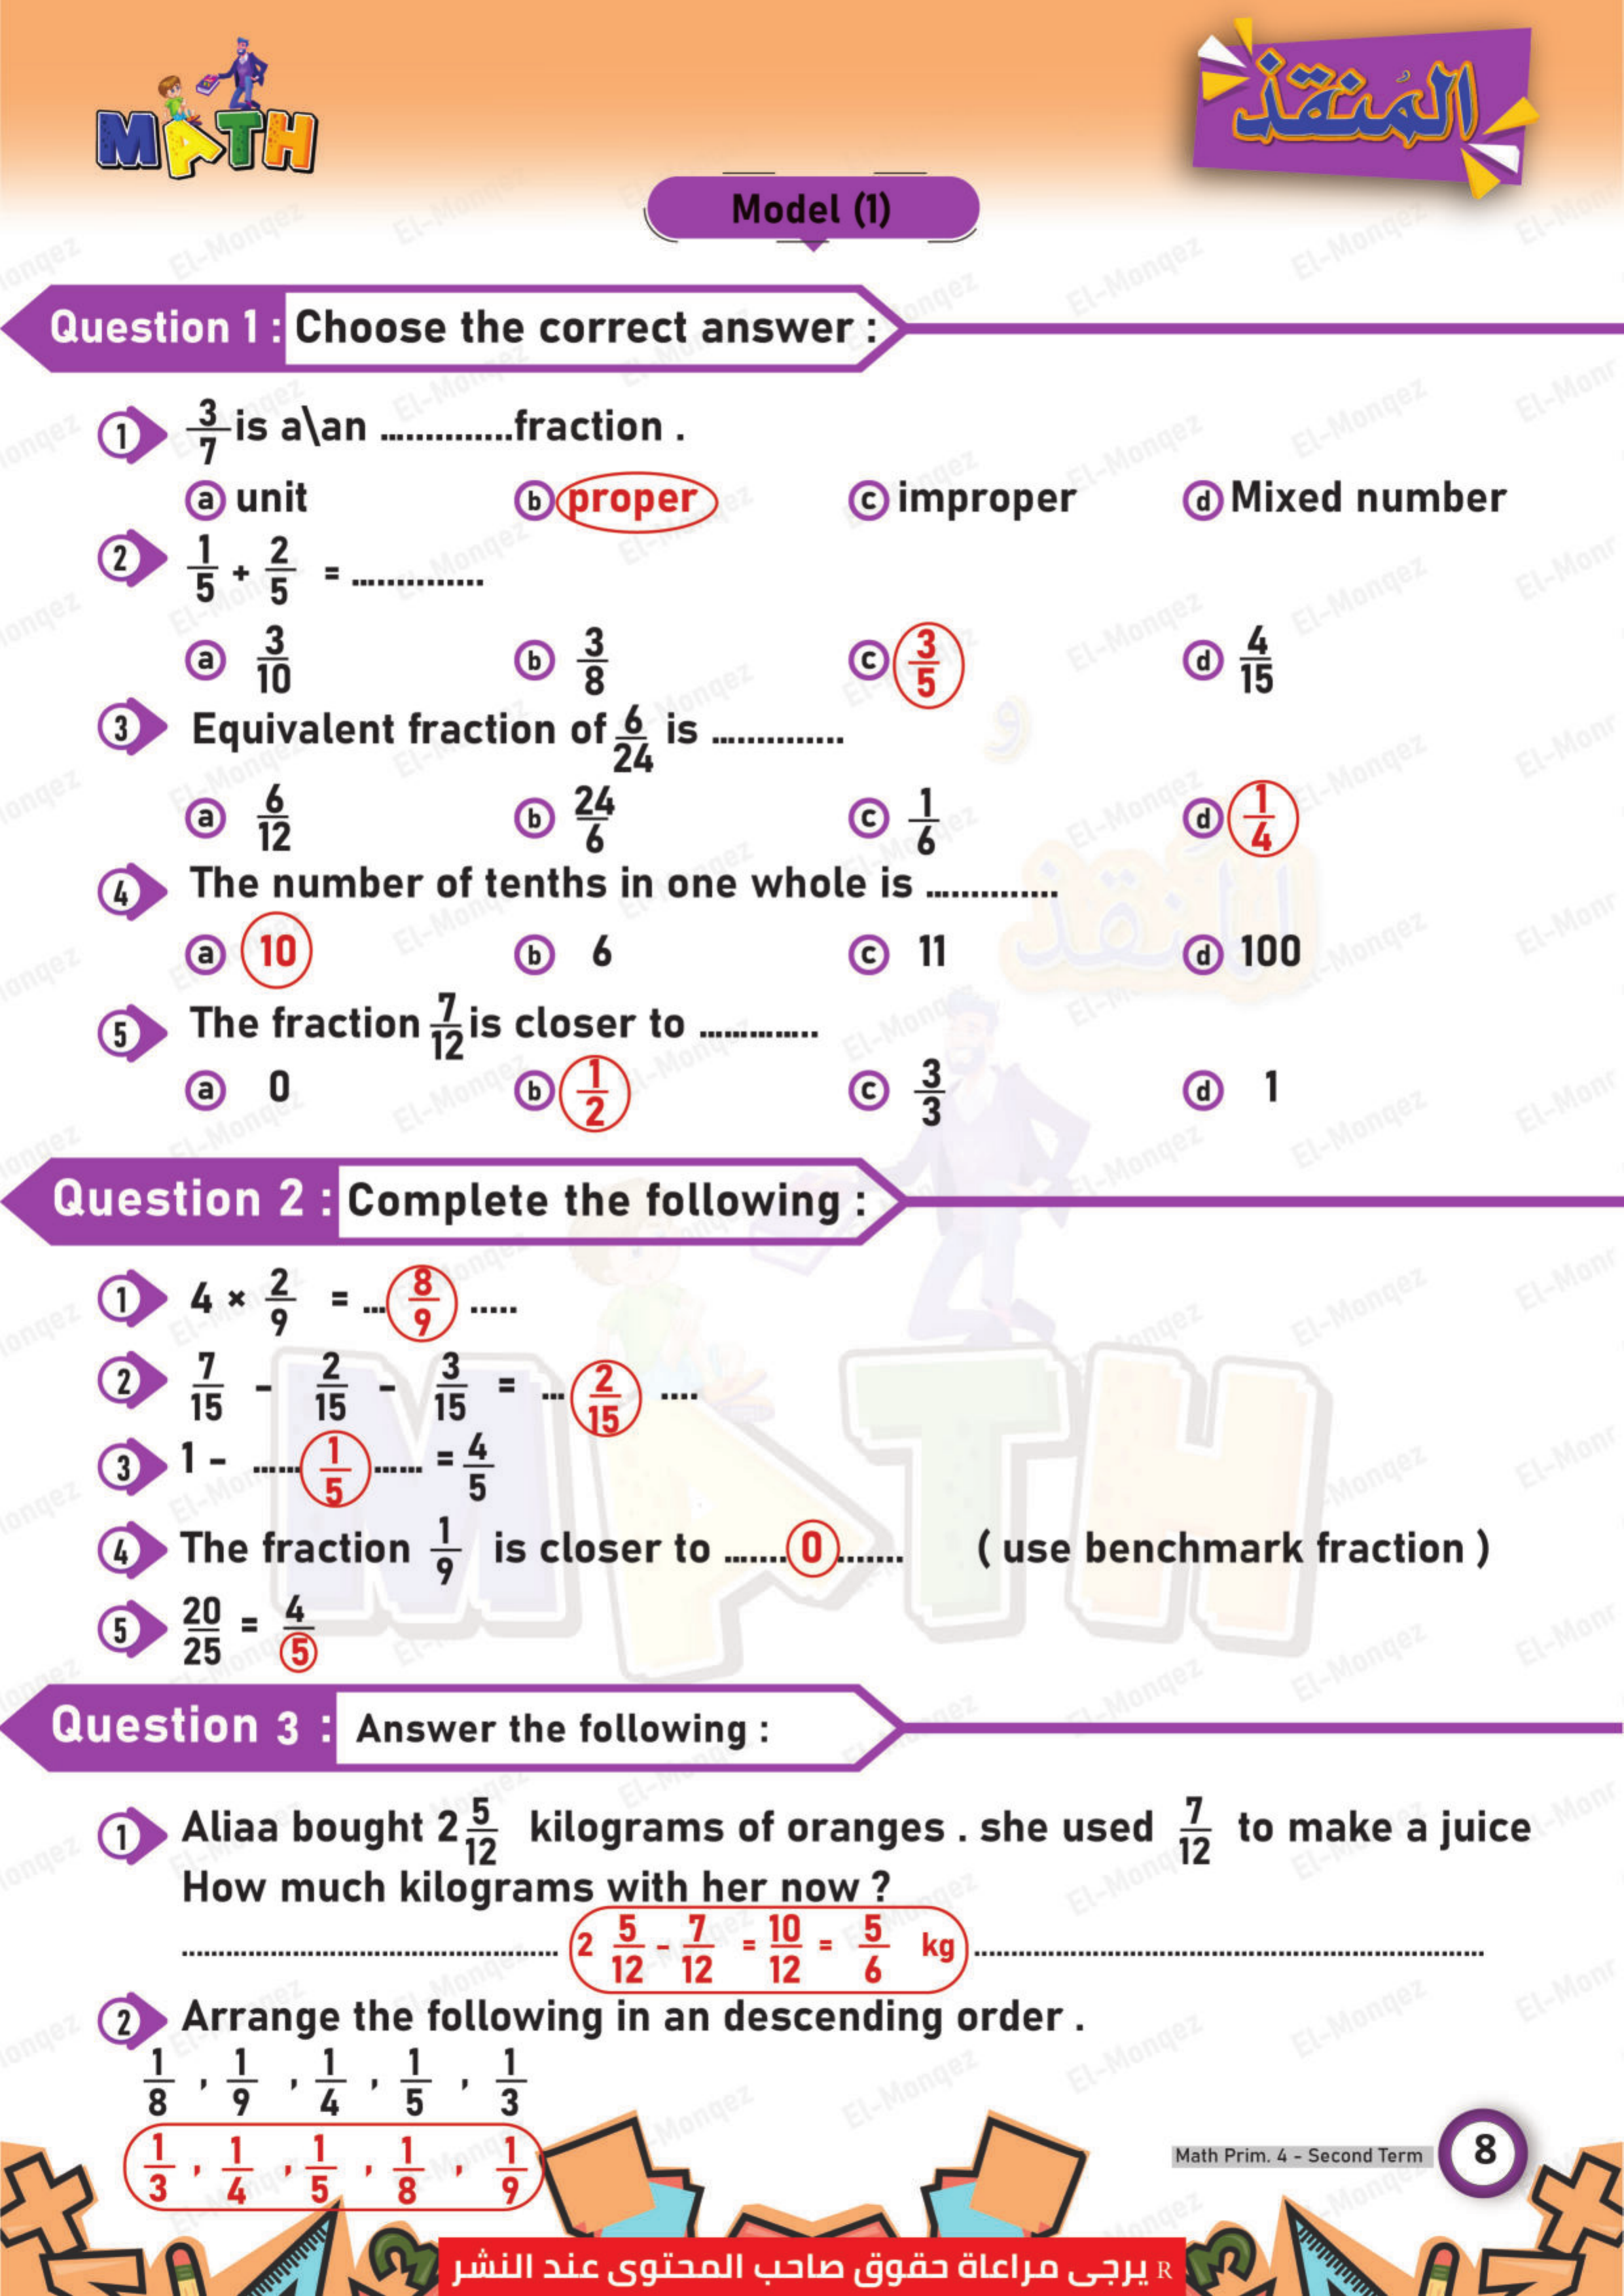 MATH
المُنقذ
Model (1)
Question 1 : Choose the correct answer :
1 3/7 is a\an ..............fraction .
a unit b proper c improper d Mixed number
2 1/5 + 2/5 = ...............
a 3/10 b 3/8 c 3/5 d 4/15
3 Equivalent fraction of 6/24 is ...............
a 6/12 b 24/6 c 1/6 d 1/4
4 The number of tenths in one whole is ...............
a 10 b 6 c 11 d 100
5 The fraction 7/12 is closer to ..............
a 0 b 1/2 c 3/3 d 1
Question 2 : Complete the following :
1 4 × 2/9 = ... 8/9 .....
2 7/15 - 2/15 - 3/15 = ... 2/15 ....
3 1 - ...... 1/5 ...... = 4/5
4 The fraction 1/9 is closer to ....... 0 ........ ( use benchmark fraction )
5 20/25 = 4/5
Question 3 : Answer the following :
1 Aliaa bought 2 5/12 kilograms of oranges . she used 7/12 to make a juice
How much kilograms with her now ?
2 5/12 - 7/12 = 10/12 = 5/6 kg
2 Arrange the following in an descending order .
1/8 , 1/9 , 1/4 , 1/5 , 1/3
1/3 , 1/4 , 1/5 , 1/8 , 1/9
Math Prim. 4 - Second Term 8
يرجى مراعاة حقوق صاحب المحتوى عند النشر R